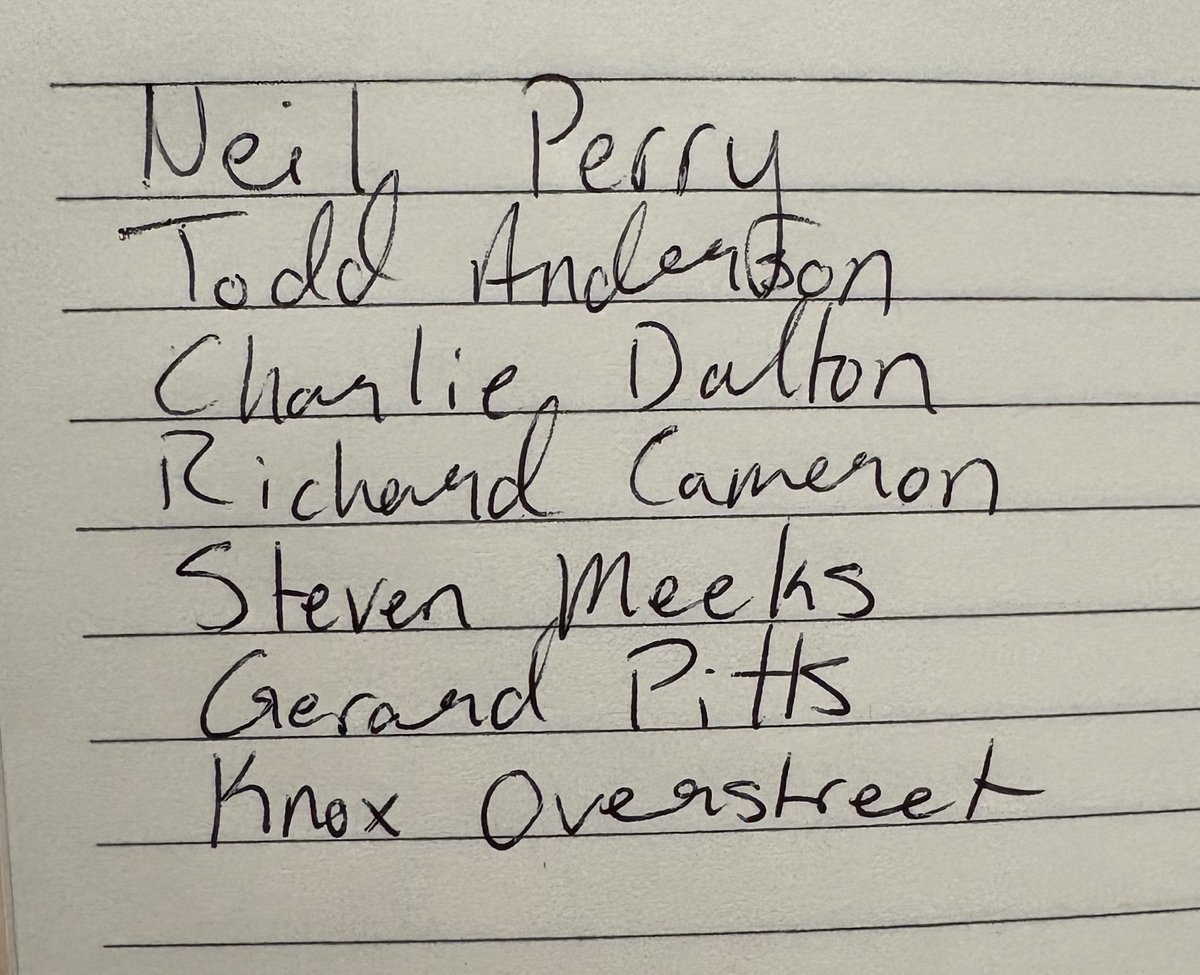 Neil Perry
Todd Anderson
Charlie Dalton
Richard Cameron
Steven Meeks
Gerard Pitts
Knox Overstreet